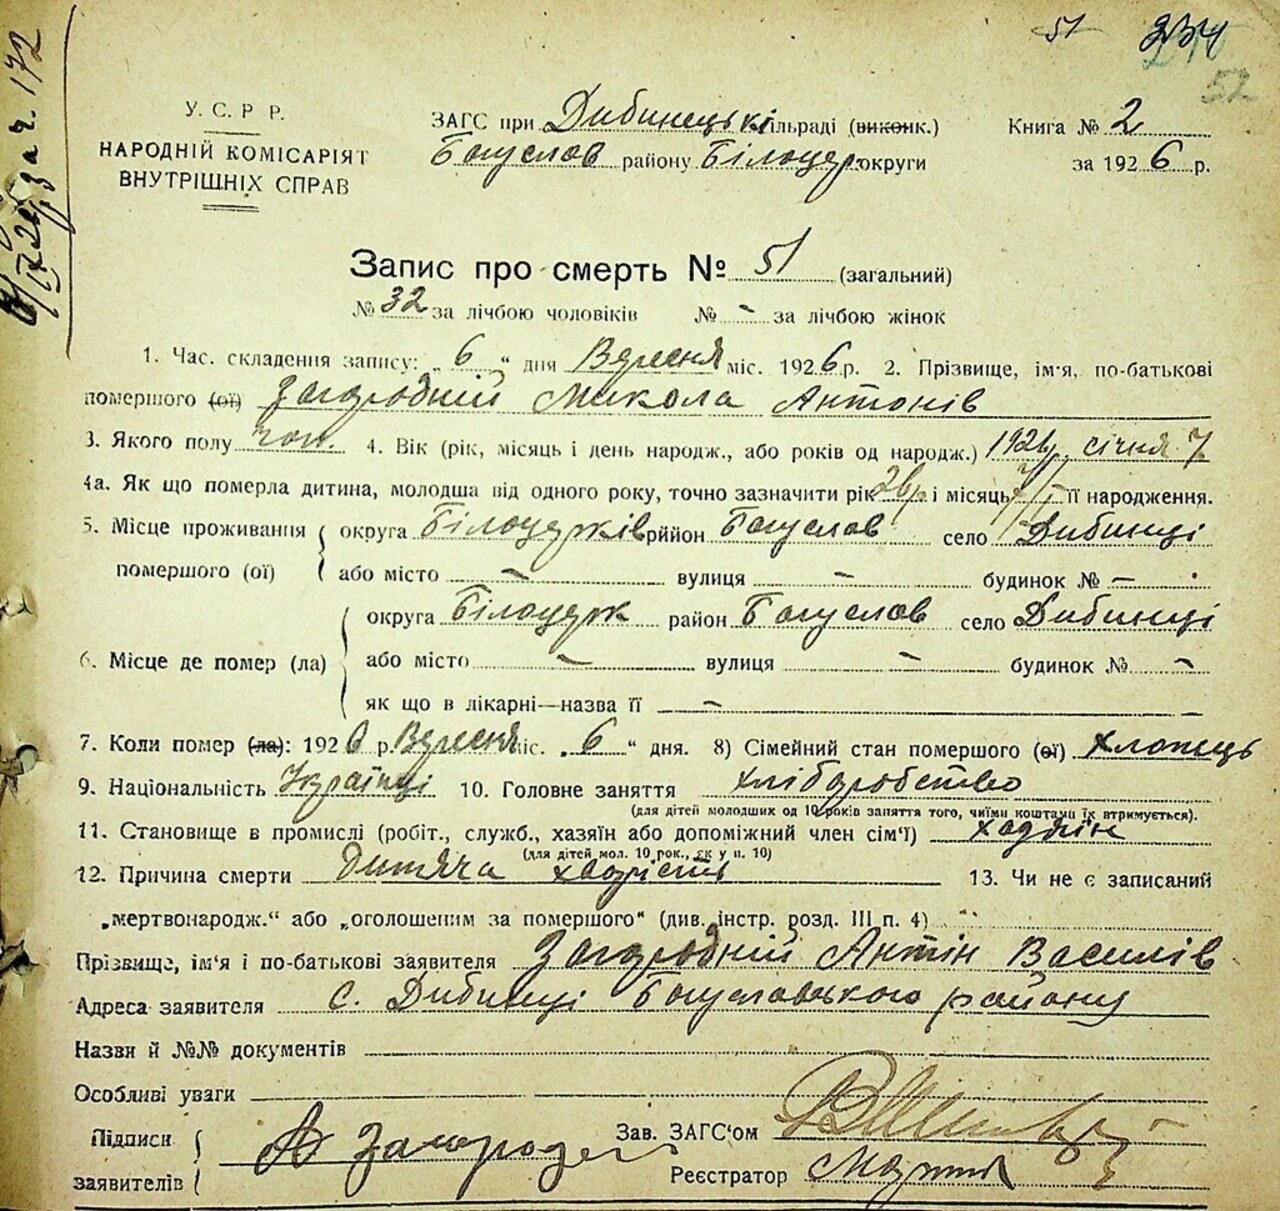 51 234
52
за ч. 172
У. С. Р. Р.
НАРОДНІЙ КОМІСАРІЯТ
ВНУТРІШНІХ СПРАВ
ЗАГС при Дибинецькі сільраді (виконк.)
Богуслав району Білоцер. округи
Книга № 2
за 1926 р.
Запис про смерть № 51 (загальний)
№ 32 за лічбою чоловіків № - за лічбою жінок
1. Час. складення запису: „ 6 “ дня Вересня міс. 1926 р. 2. Прізвище, ім'я, по-батькові
помершого (ої) Загородній Микола Антонів
3. Якого полу чол. 4. Вік (рік, місяць і день народж., або років од народж.) 1926 р. січня 7
4а. Як що померла дитина, молодша від одного року, точно зазначити рік 26 р. і місяць 7/I її народження.
5. Місце проживання округа Білоцерків район Богуслав село Дибинці
помершого (ої) або місто — вулиця — будинок № —
округа Білоцерк район Богуслав село Дибинці
6. Місце де помер (ла) або місто — вулиця — будинок № —
як що в лікарні—назва її —
7. Коли помер (ла): 1926 р. Вересня міс. „ 6 “ дня. 8) Сімейний стан помершого (ої) хлопець
9. Національність Українці 10. Головне заняття хліборобство
(для дітей молодших од 10 років заняття того, чиїми коштами їх втримується).
11. Становище в промислі (робіт., служб., хазяїн або допоміжний член сім'ї) хазяїн
(для дітей мол. 10 рок., як у п. 10)
12. Причина смерти Дитяча хворість 13. Чи не є записаний
„мертвонародж.“ або „оголошеним за помершого“ (див. інстр. розд. III п. 4)
Прізвище, ім'я і по-батькові заявителя Загородній Антін Василів
Адреса заявителя с. Дибинці Богуславського району
Назви й №№ документів
Особливі уваги
Підписи
заявителів А Загородній
Зав. ЗАГС'ом
Реєстратор